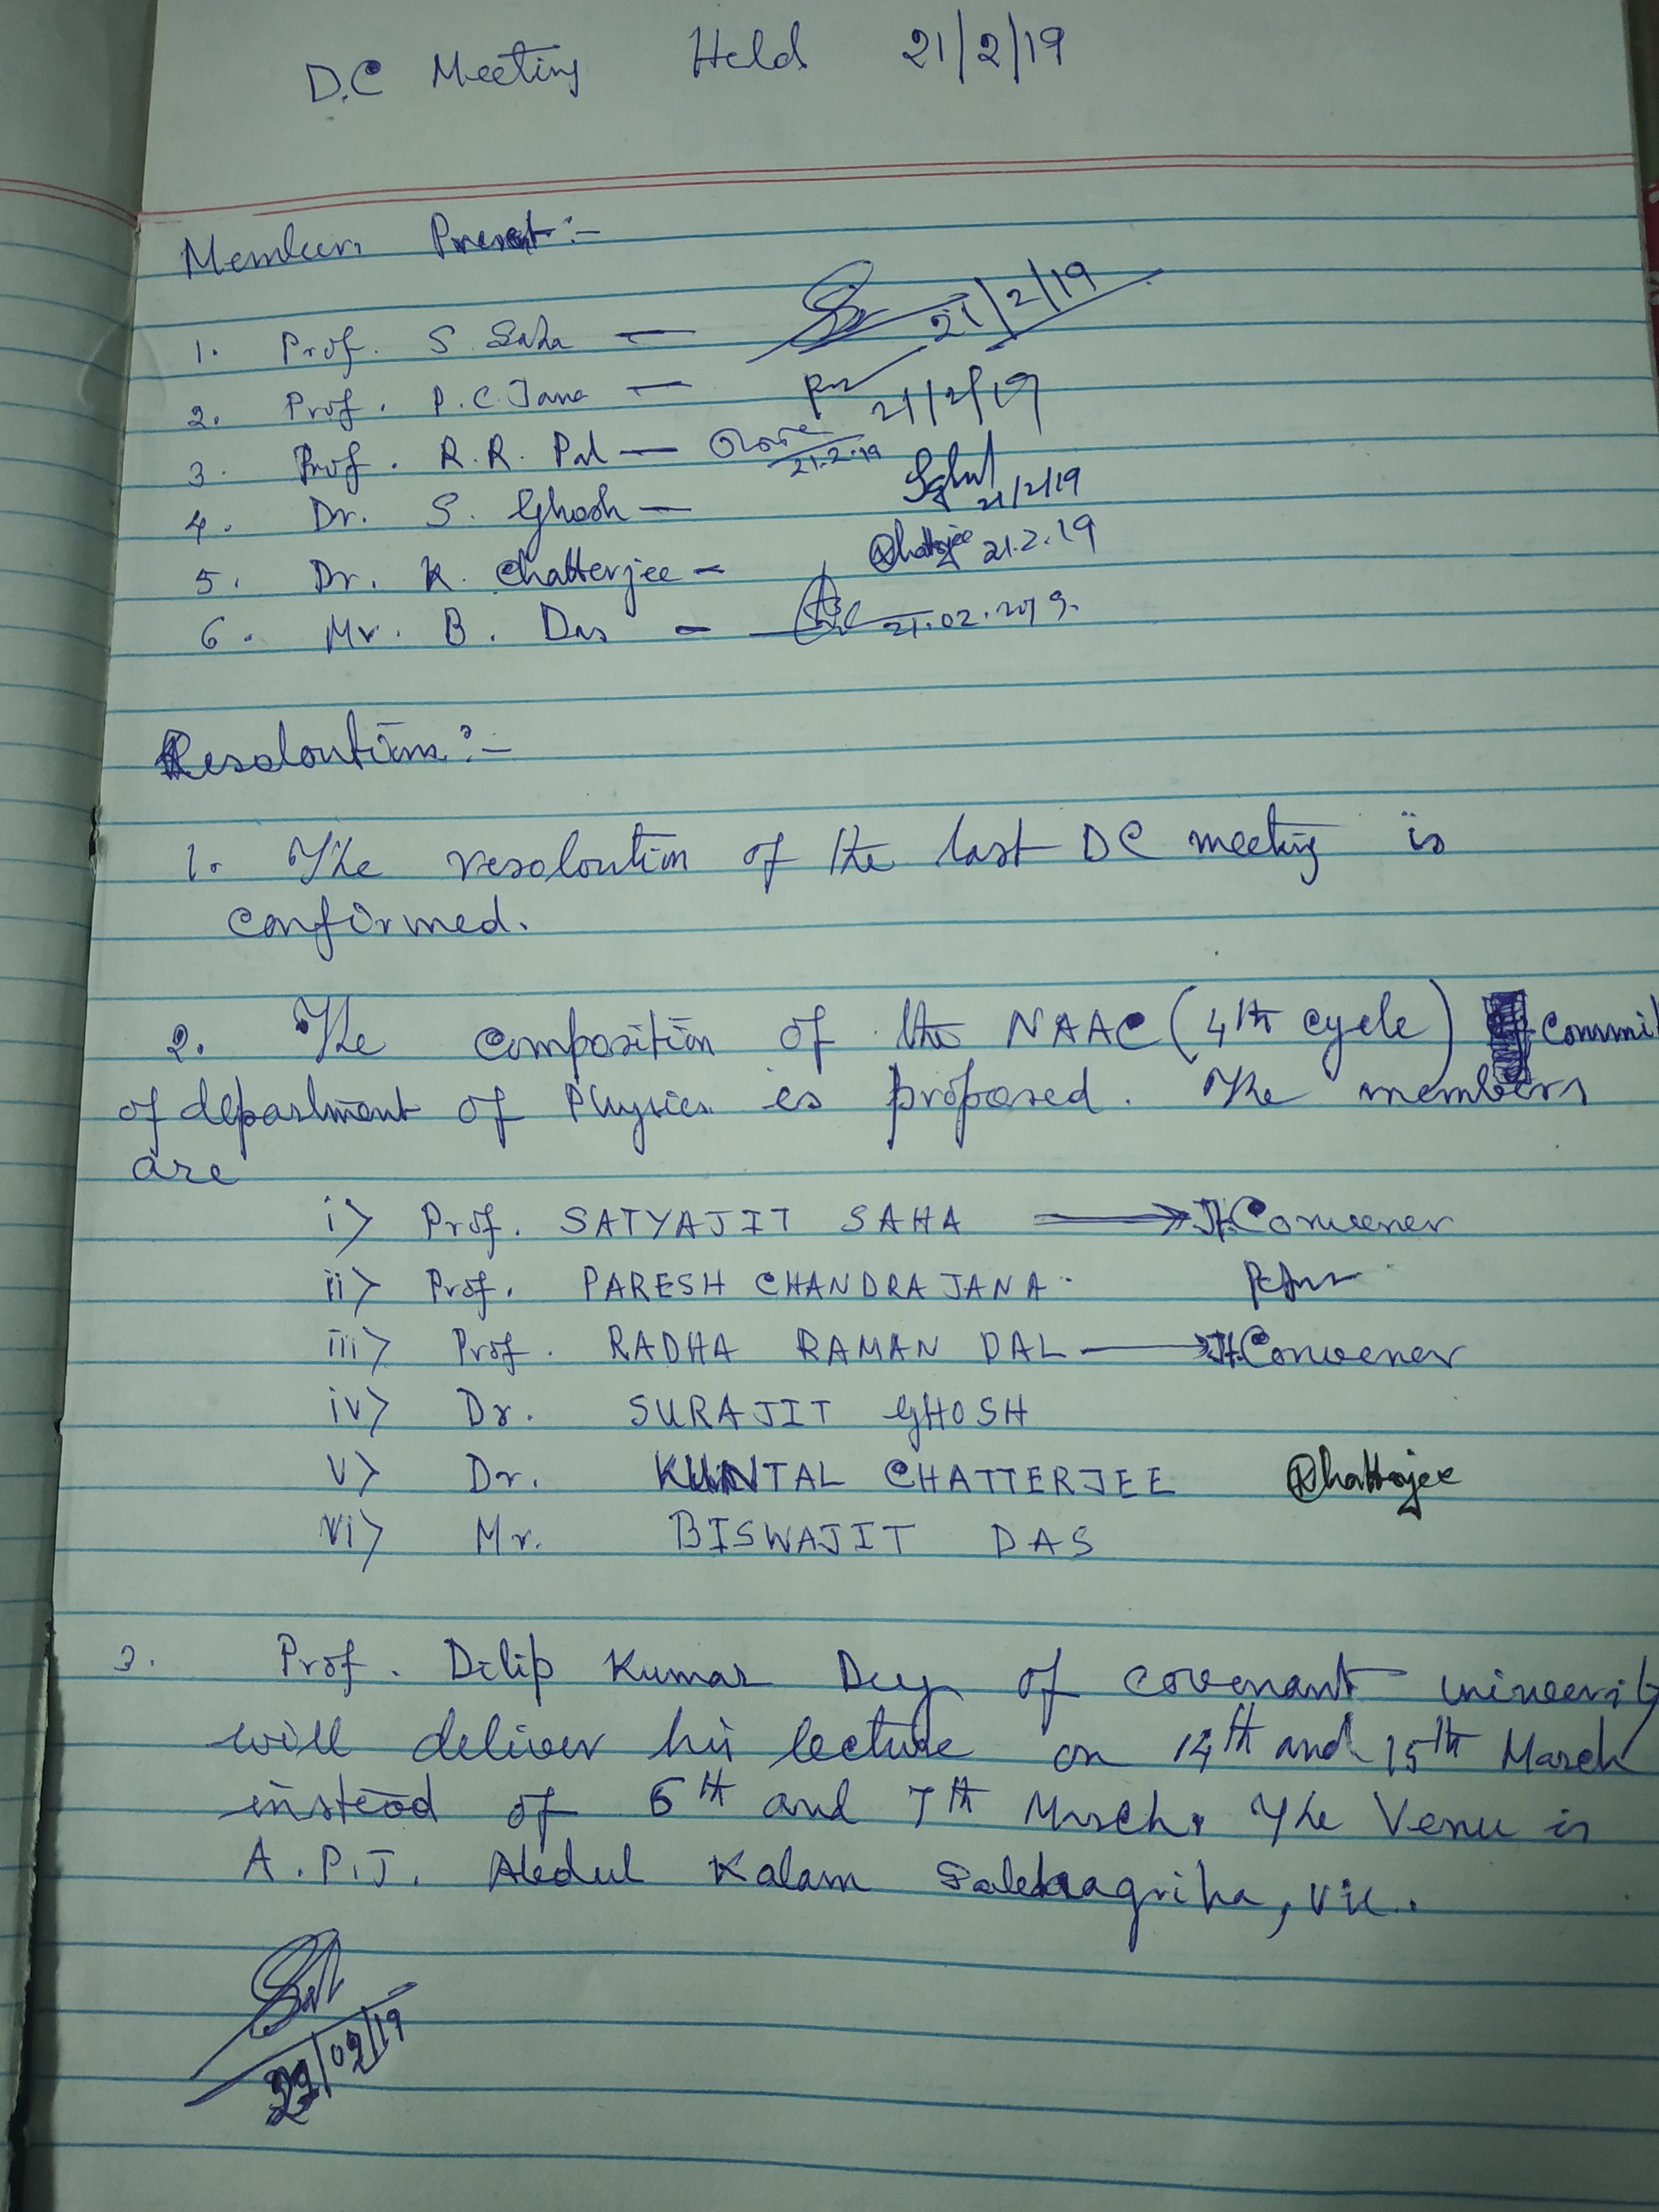 D.C Meeting Held 21/2/19
Members Present:-
1. Prof. S. Saha — 21/2/19
2. Prof. P.C. Jana — 21/2/19
3. Prof. R.R. Pal — 21.2.19
4. Dr. S. Ghosh — 21/2/19
5. Dr. K. Chatterjee – Chatterjee 21.2.19
6. Mr. B. Das – 21.02.2019.
Resoloutions:-
1. The resoloution of the last DC meeting is
confirmed.
2. The composition of the NAAC (4th cycle) Commi
of department of Physics is proposed. The members
are
i> Prof. SATYAJIT SAHA → Jt. Convener
ii> Prof. PARESH CHANDRA JANA.
iii> Prof. RADHA RAMAN PAL → Jt. Convener
iv> Dr. SURAJIT GHOSH
v> Dr. KUNTAL CHATTERJEE Chatterjee
vi> Mr. BISWAJIT DAS
3. Prof. Dilip Kumar Dey of covenant university
will deliver his lecture on 14th and 15th March
instead of 6th and 7th March. The Venu is
A.P.J. Abdul Kalam Sabhagriha, VU.
/02/19